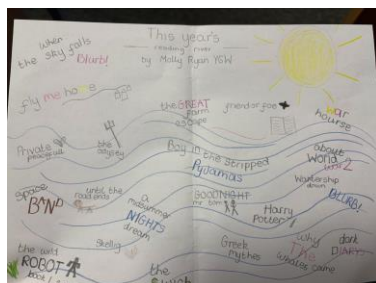 This year's
reading river
by Molly Ryan Y5W
when
the sky falls
Blurb!
fly me home
the GREAT
farm
escape
friend or foe
war
hourse
Private
peaceful
the
odyssey
Boy in the stripped
Pyjamas
about
World
War 2
Watership
down
BLURB!
space
BAND
until the
road ends
a
midsummer
NIGHTS
dream
GOODNIGHT
mr tom
Harry
Potter
the wild
ROBOT
book 1
Skellig
the
Greek
mythes
why
The
whales came
dork
DIARYS